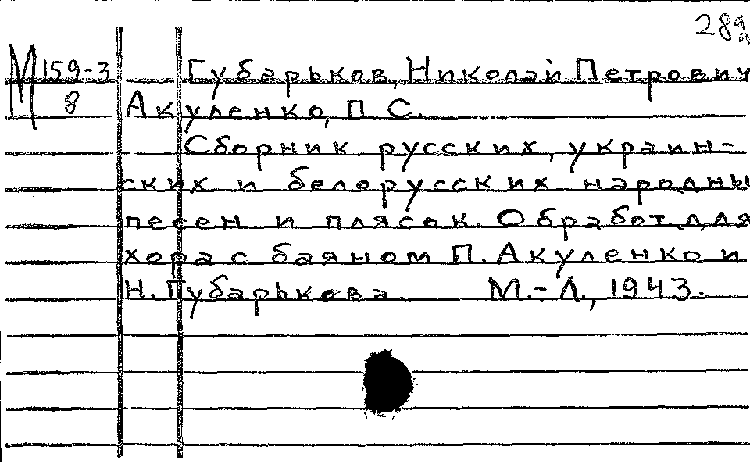 289
М 159-3 Губарьков, Николай Петрович
8 Акуленко, П. С.
Сборник русских, украин-
ских и белорусских народны
песен и плясок. Обработ. для
хора с баяном П. Акуленко и
Н. Губарькова М.-Л., 1943.